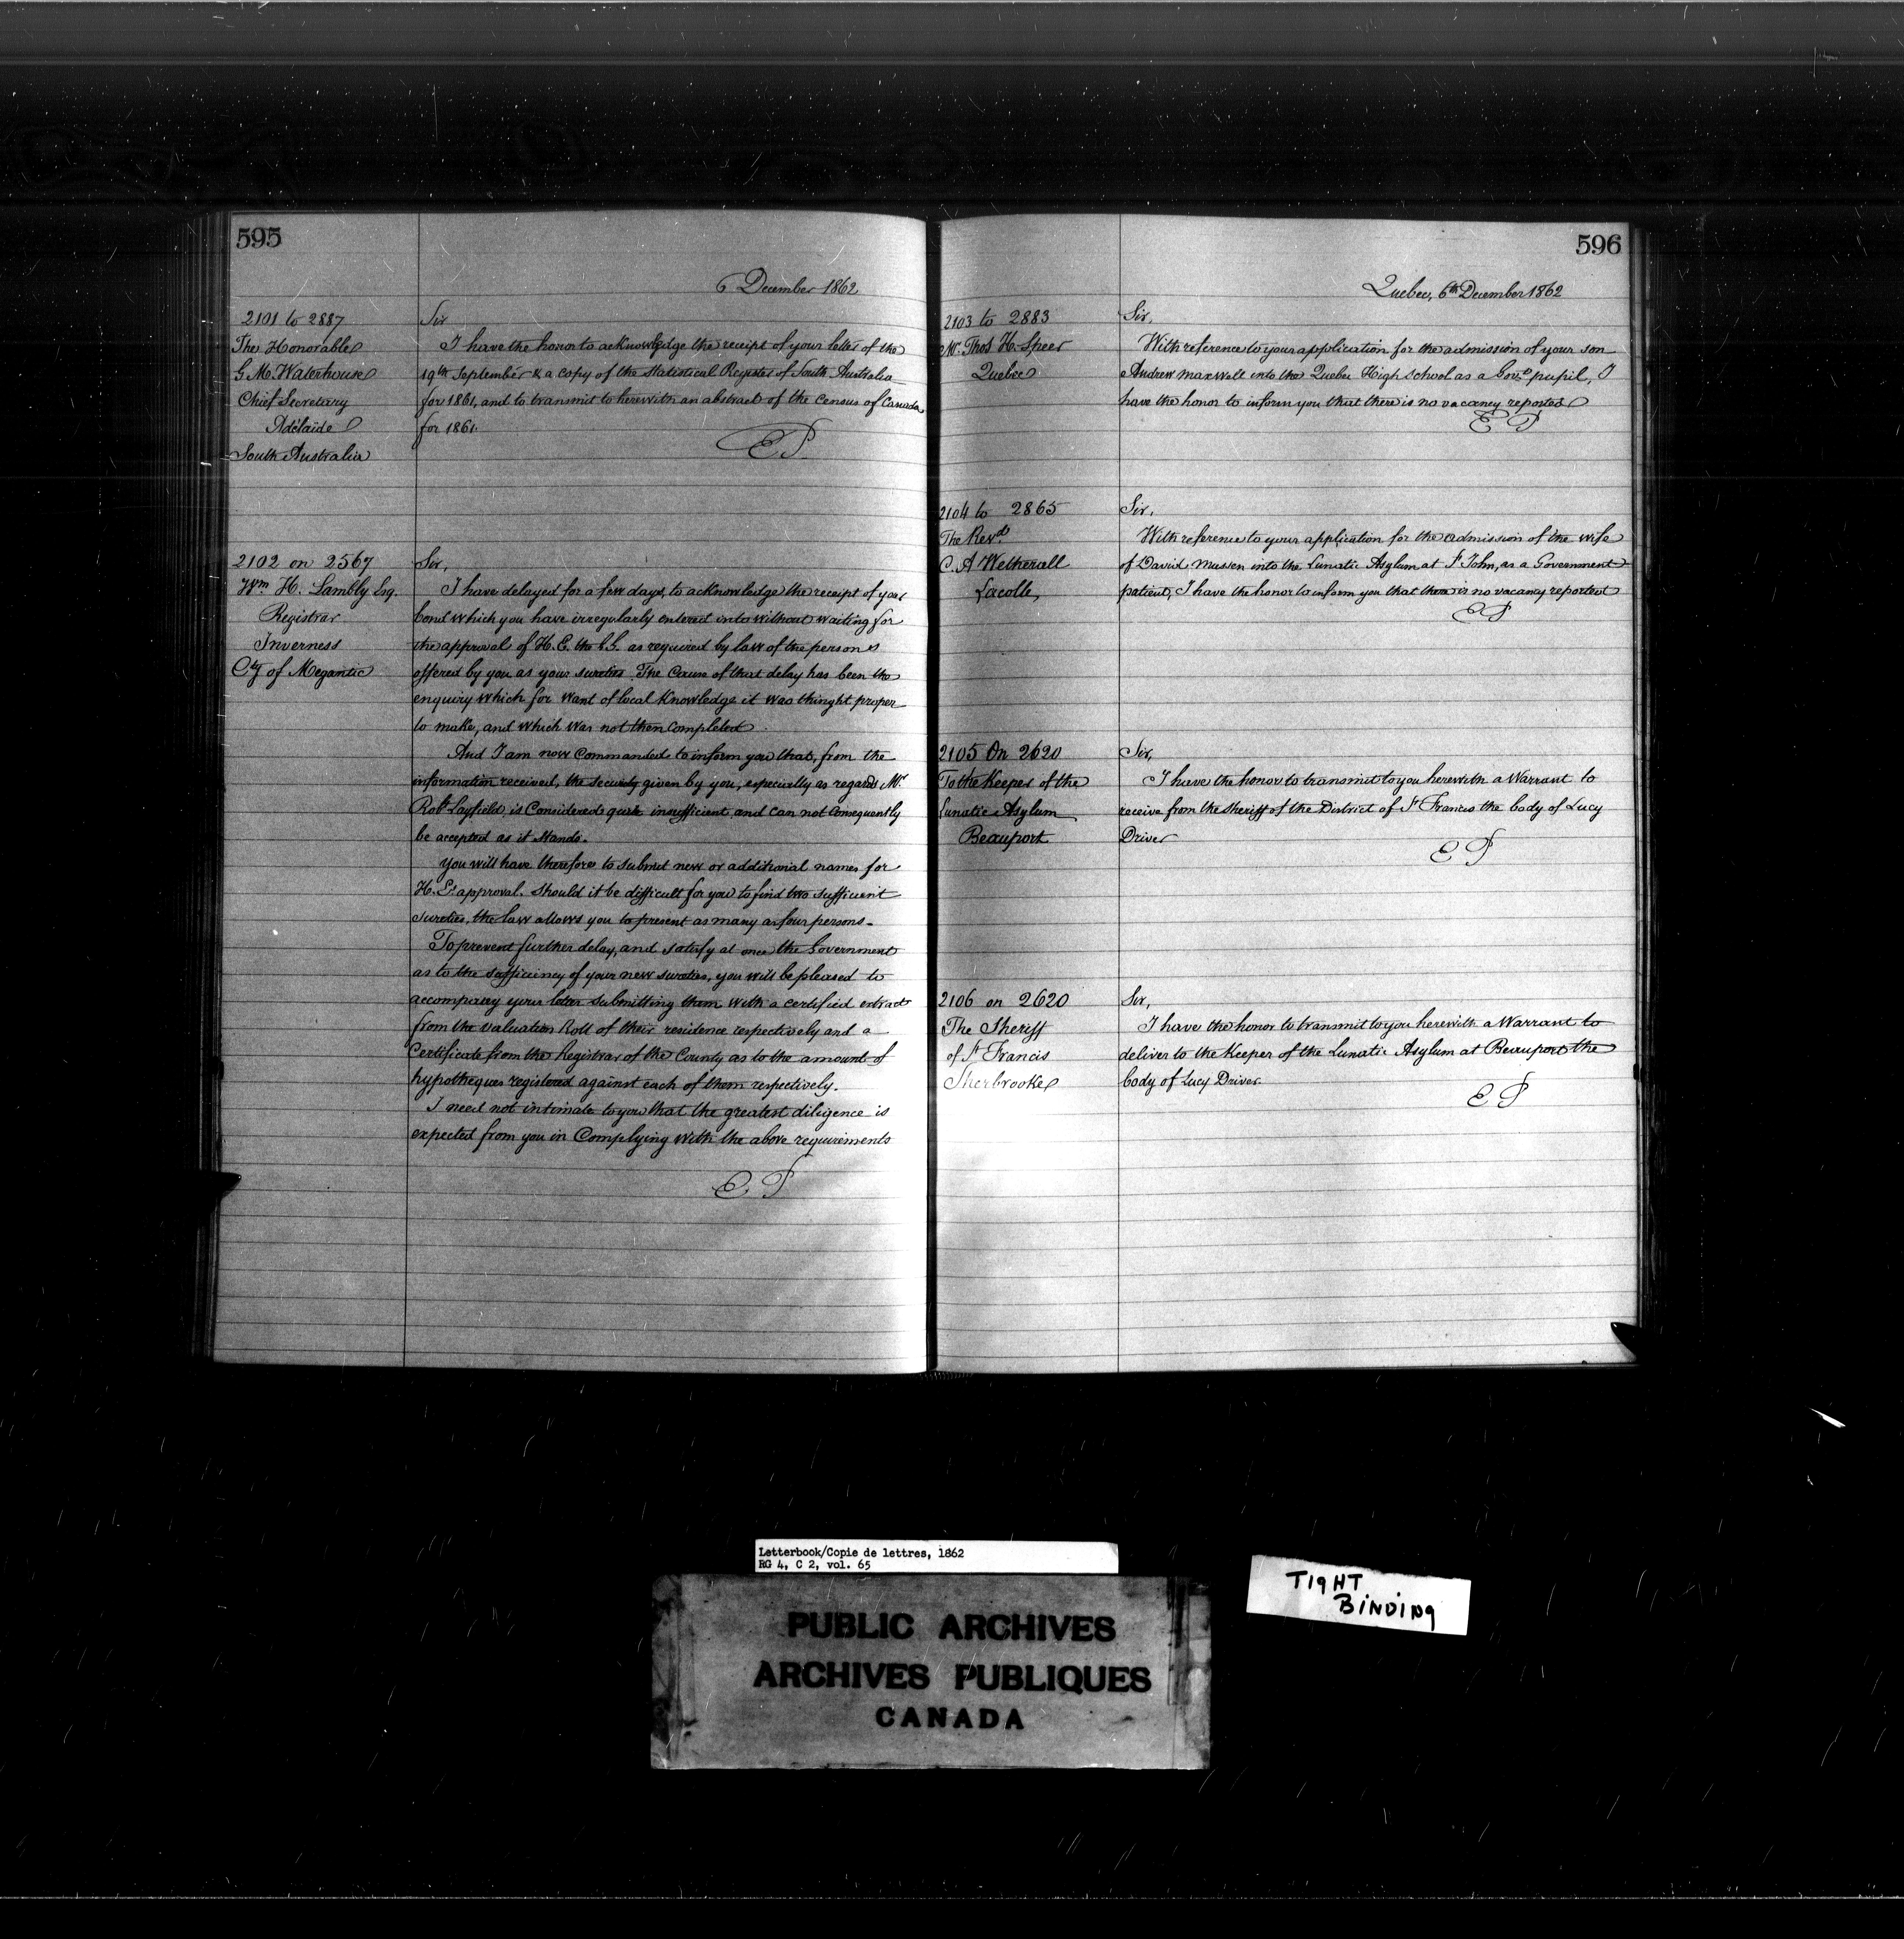 595
6 December 1862
2101 to 2887
The Honorable
G. M. Waterhouse
Chief Secretary
Adelaide
South Australia
Sir
I have the honor to acknowledge the receipt of your letter of the
19th September & a copy of the Statistical Register of South Australia
for 1861, and to transmit to herewith an abstract of the Census of Canada
for 1861.
EP
2102 on 2567
Wm H. Lambly Esq.
Registrar
Inverness
Cty of Megantic
Sir,
I have delayed for a few days, to acknowledge the receipt of your
bond which you have irregularly entered into without waiting for
the approval of H. E. the G. G. as required by law of the persons
offered by you as your sureties. The Cause of that delay has been the
enquiry which for want of local Knowledge it was thought proper
to make, and which was not then completed.
And I am now Commanded to inform you that, from the
information received, the security given by you, especially as regards Mr
Robt Layfield, is Considered quite insufficient and can not Consequently
be accepted as it Stands.
You will have therefore to submit new or additional names for
H. E's approval. Should it be difficult for you to find two sufficient
sureties, the law allows you to present as many as four persons.
To prevent further delay, and satisfy at once the Government
as to the sufficiency of your new sureties, you will be pleased to
accompany your letter submitting them with a certified extract
from the valuation Roll of their residence respectively and a
Certificate from the Registrar of the County as to the amount of
hypotheques registered against each of them respectively.
I need not intimate to you that the greatest diligence is
expected from you in Complying with the above requirements
EP
596
Quebec, 6th December 1862
2103 to 2883
Mr. Thos H. Speer
Quebec
Sir,
With reference to your application for the admission of your son
Andrew Maxwell into the Quebec High School as a Govt pupil, I
have the honor to inform you that there is no vacancy reported
EP
2104 to 2865
The Revd
C. A Wetherall
Lacolle,
Sir,
With reference to your application for the admission of the wife
of David Mussen into the Lunatic Asylum at St John, as a Government
patient, I have the honor to inform you that there is no vacancy reported
EP
2105 On 2620
To the Keeper of the
Lunatic Asylum
Beauport
Sir,
I have the honor to transmit to you herewith a Warrant to
receive from the Sheriff of the District of St Francis the body of Lucy
Driver
EP
2106 on 2620
The Sheriff
of St Francis
Sherbrooke
Sir,
I have the honor to transmit to you herewith a Warrant to
deliver to the Keeper of the Lunatic Asylum at Beauport the
body of Lucy Driver.
EP
Letterbook/Copie de lettres, 1862
RG 4, C 2, vol. 65
PUBLIC ARCHIVES
ARCHIVES PUBLIQUES
CANADA
TIGHT
BINDING